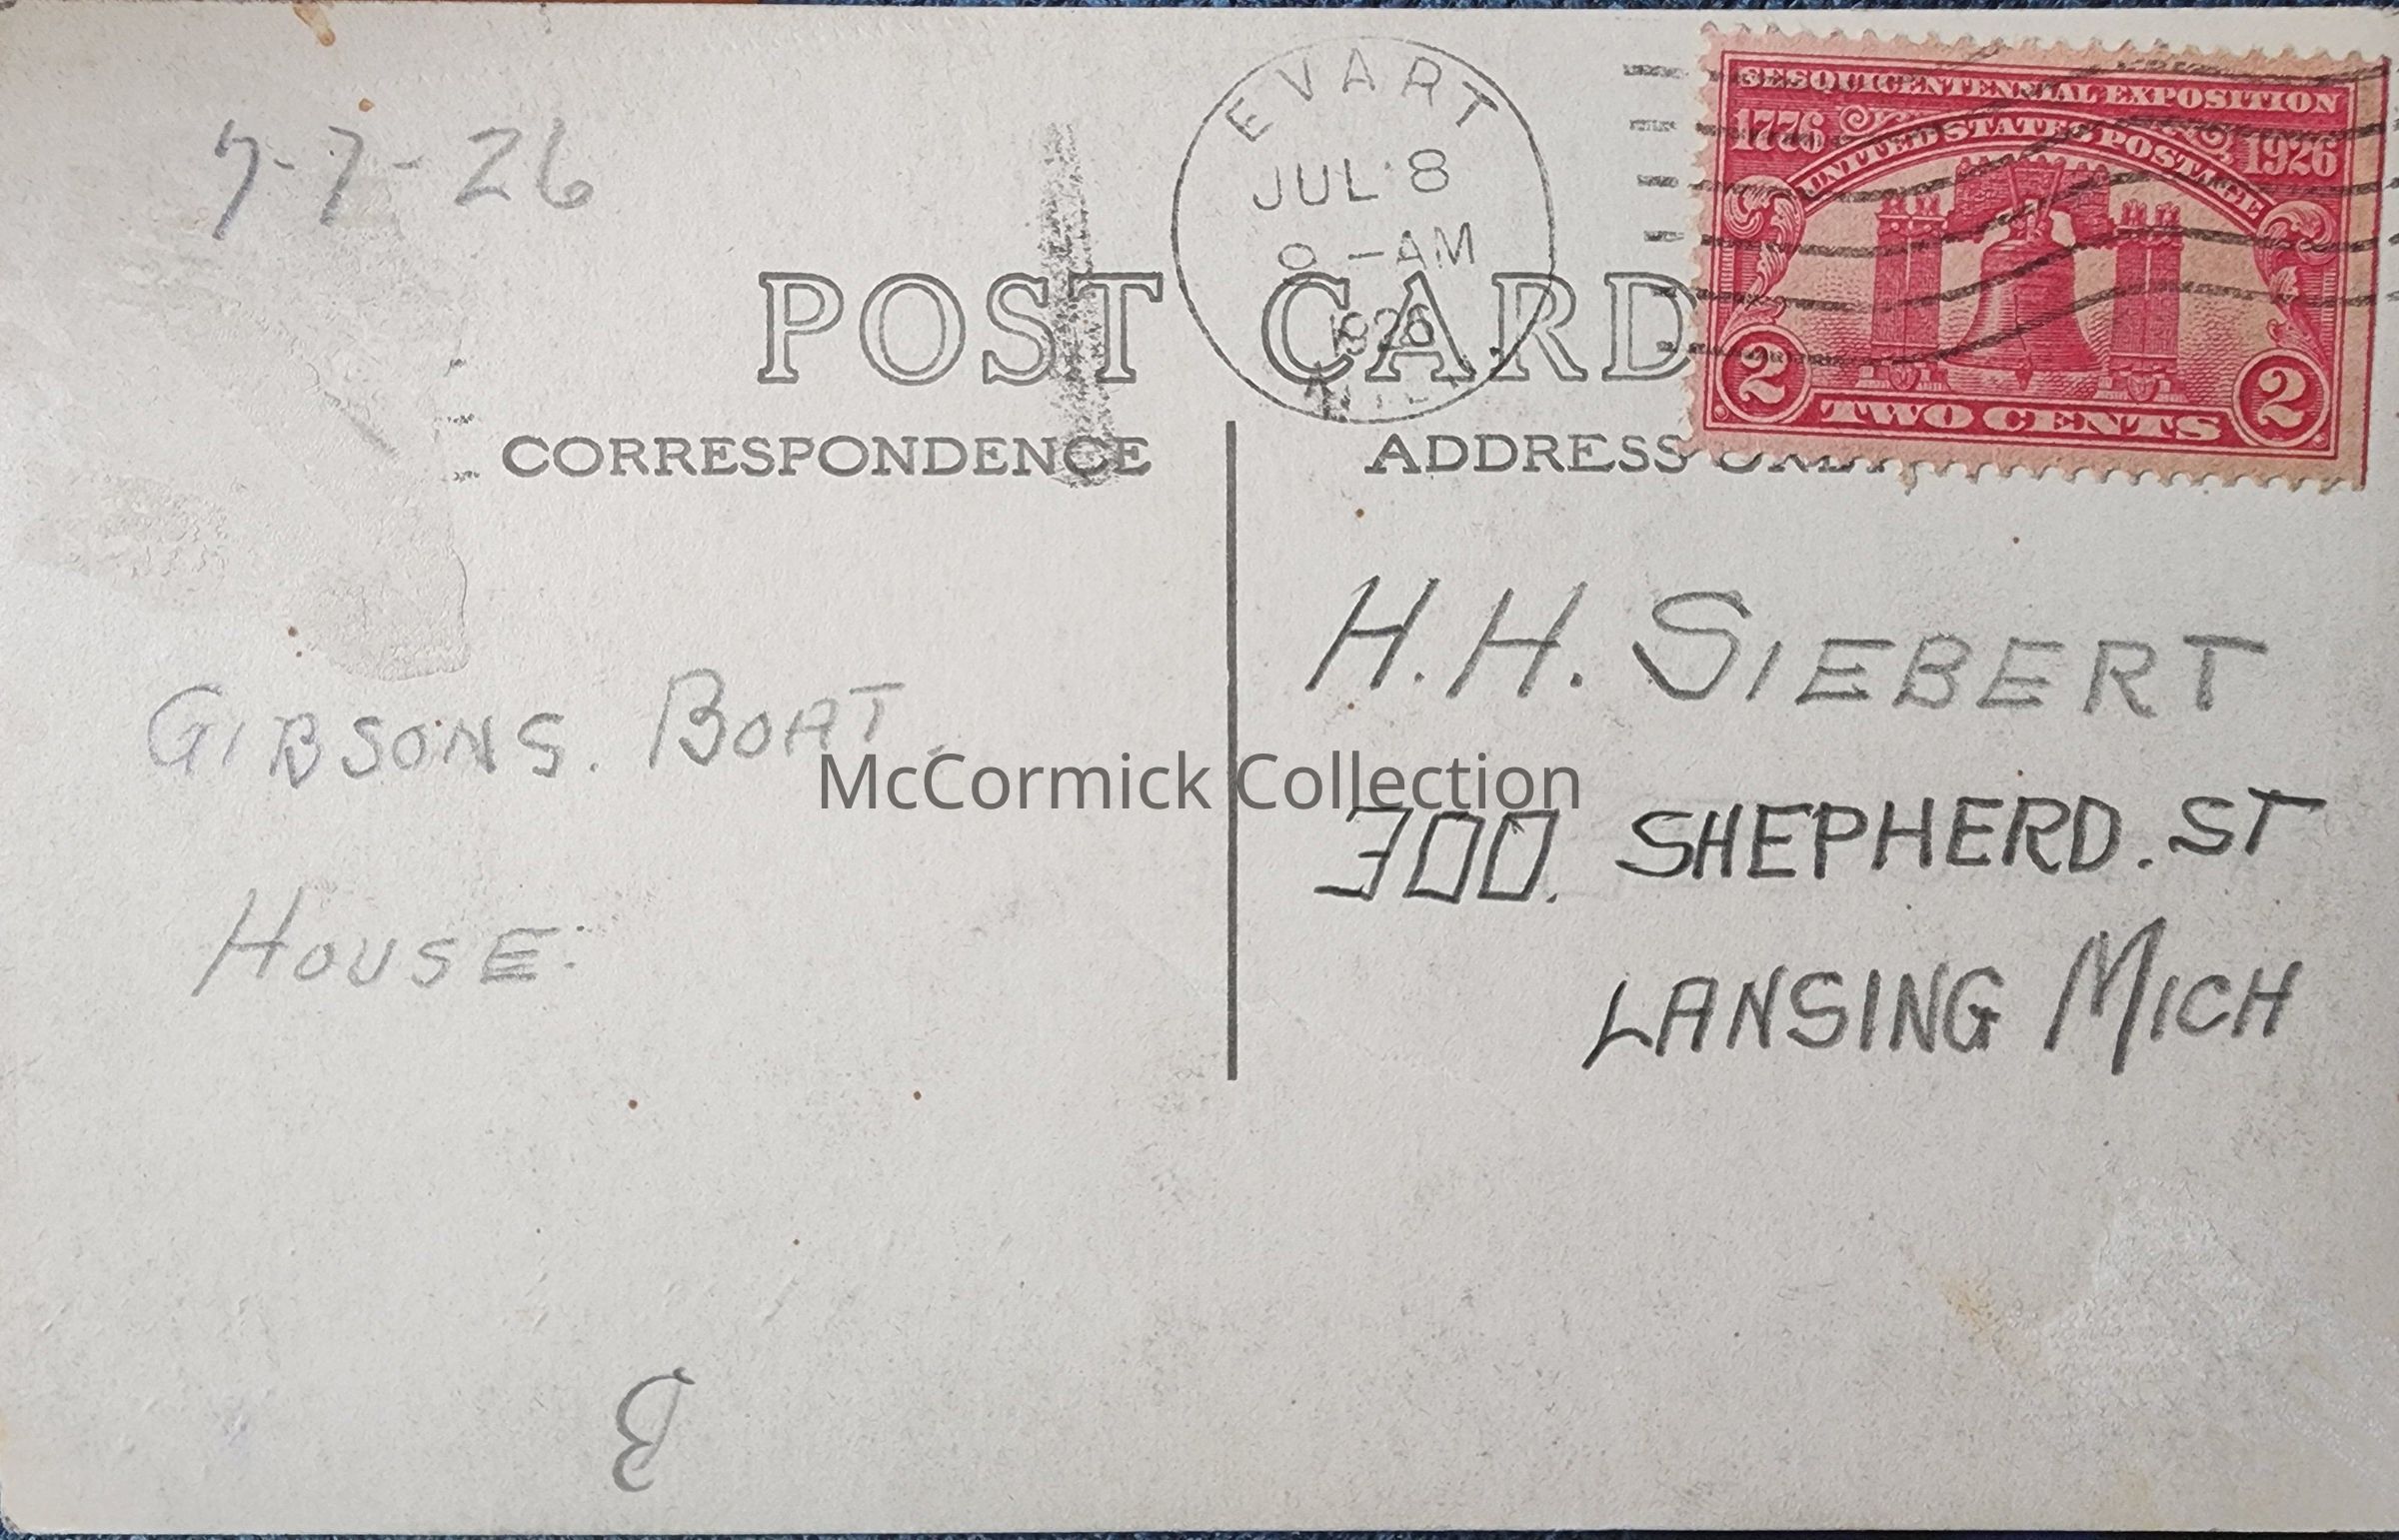 7-7-26
EVART
JUL 8
-AM
1926
MICH.
SESQUICENTENNIAL EXPOSITION
1776 1926
UNITED STATES POSTAGE
2 2
TWO CENTS
POST CARD
CORRESPONDENCE
ADDRESS ONLY
GIBSONS. BOAT
HOUSE.
H. H. SIEBERT
300. SHEPHERD. ST
LANSING MICH
McCormick Collection